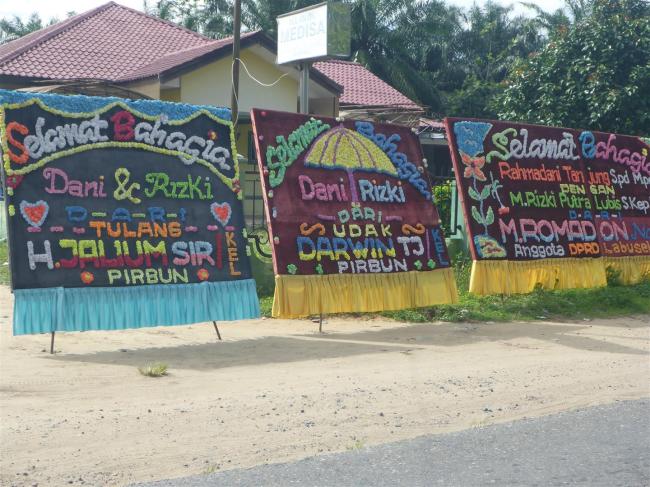 MEDISA
Selamat Bahagia
Dani & Rizki
D-A-R-I
TULANG
H. JALIUM SIR
KEL
PIRBUN
Selamat Bahagia
Dani Rizki
DARI
UDAK
DARWIN TJ
KEL
PIRBUN
Selamat Bahagia
Rahmadani Tanjung Spd Mpd
DENGAN
M. Rizki Putra Lubis S.Kep
D.A.R.I
M. ROMADON
Anggota DPRD Labusel